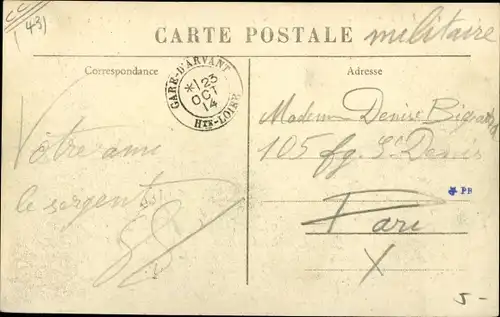 (43)
CARTE POSTALE militaire
Correspondance
Adresse
GARE-D'ARVANT
*1 23
OCT
14
HTE-LOIRE
Madem Denise
105 fg. St Denis
Pari
X
Vôtre ami
le sergent
PB
5-